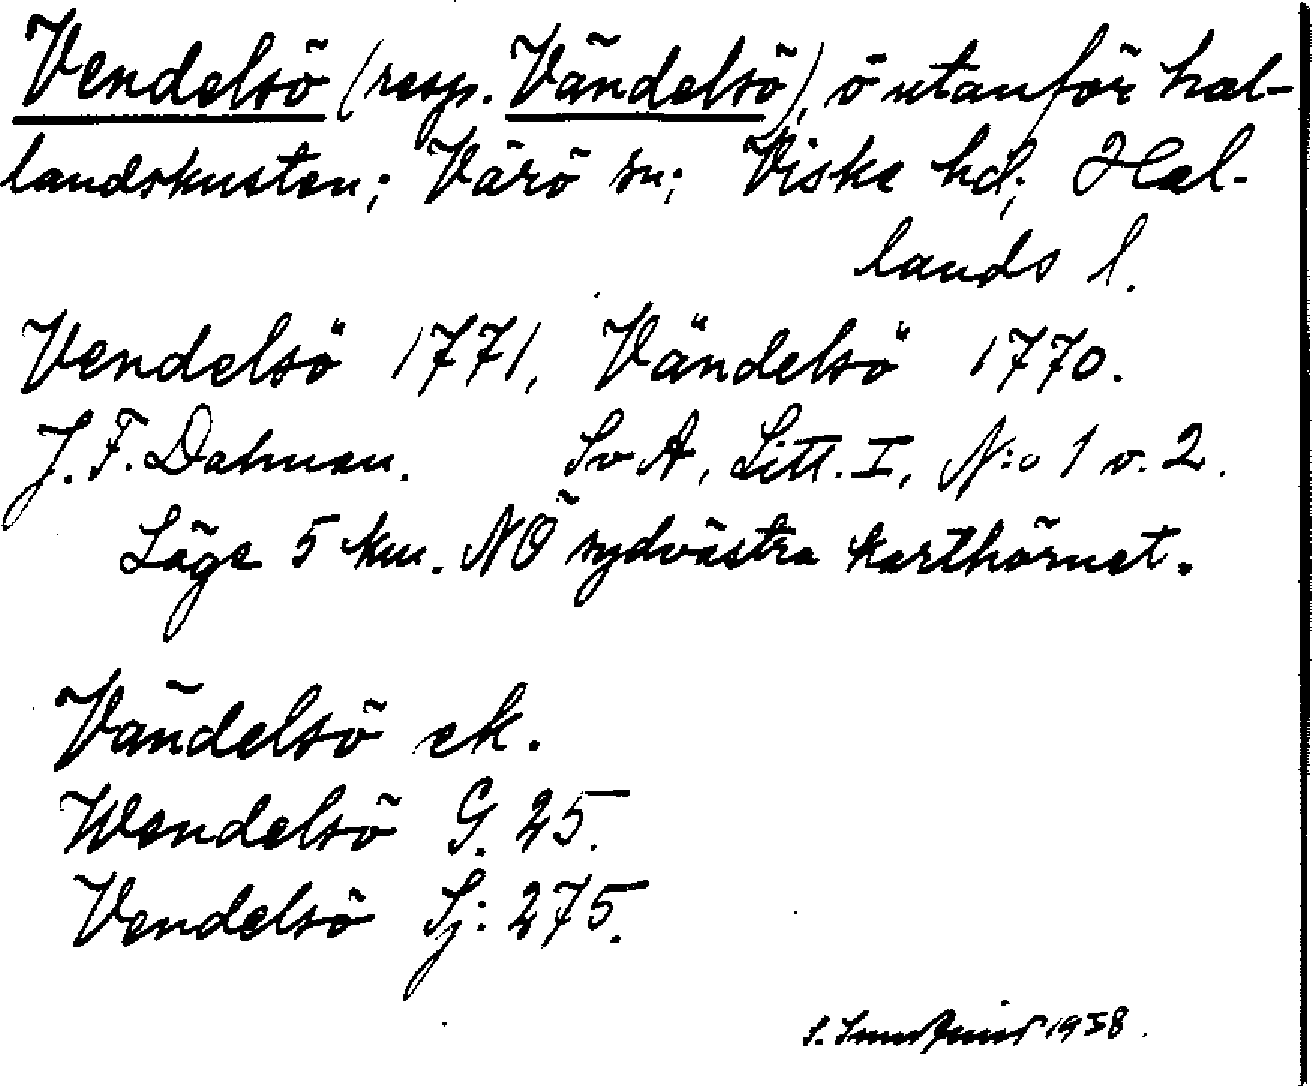 Vendelsö (resp. Vändelsö), ö utanför hal-
landskusten; Värö sn; Viske hd; Hal-
lands l.
Vendelsö 1771, Vändelsö 1770.
J. F. Dalman. SvA, Litt. I, N:o 1 o. 2.
Läge 5 km. NÖ sydvästra karthörnet.
Vändelsö ek.
Wendelsö G. 25.
Vendelsö Sj: 275.
S. 1958.